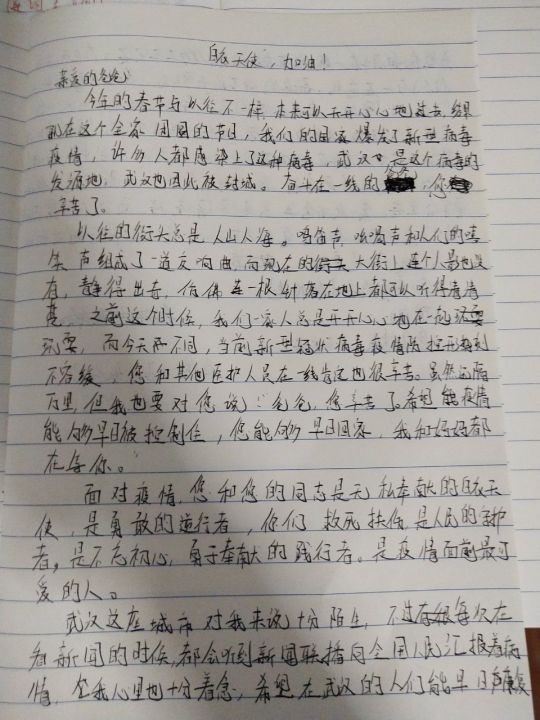 白衣天使，加油！
亲爱的爸爸：
今年的春节与以往不一样，本来可以开开心心地过去，结果
现在这个全家团圆的节日，我们的国家爆发了新型病毒
疫情，许多人都感染上了这种病毒，武汉是这个病毒的
发源地，武汉也因此被封城。奋斗在一线的爸爸，您
辛苦了。
以往的街头总是人山人海。鸣笛声、吆喝声和人们的嘻
笑声组成了一道交响曲，而现在的大街上连个人影也没
有，静得出奇，仿佛连一根针落在地上都可以听得清清
楚。之前这个时候，我们一家人总是开开心心地在一起
玩耍，而今天却不同，当前新型冠状病毒疫情防控形势刻
不容缓，您和其他医护人员在一线肯定也很辛苦。虽然远隔
万里，但我也要对您说：爸爸，您辛苦了。希望能疫情
能够早日被控制住，您能够早日回家，我和妈妈都
在等你。
面对疫情，您和您的同志是无私奉献的白衣天
使，是勇敢的逆行者，你们救死扶伤是人民的守护
者。是不忘初心，勇于奉献的践行者。是疫情面前最可
爱的人。
武汉这座城市对我来说十分陌生，不过每次在
看新闻的时候，都会听到新闻联播向全国人民汇报着病
情，我心里也十分着急，希望在武汉的人们能早日康复